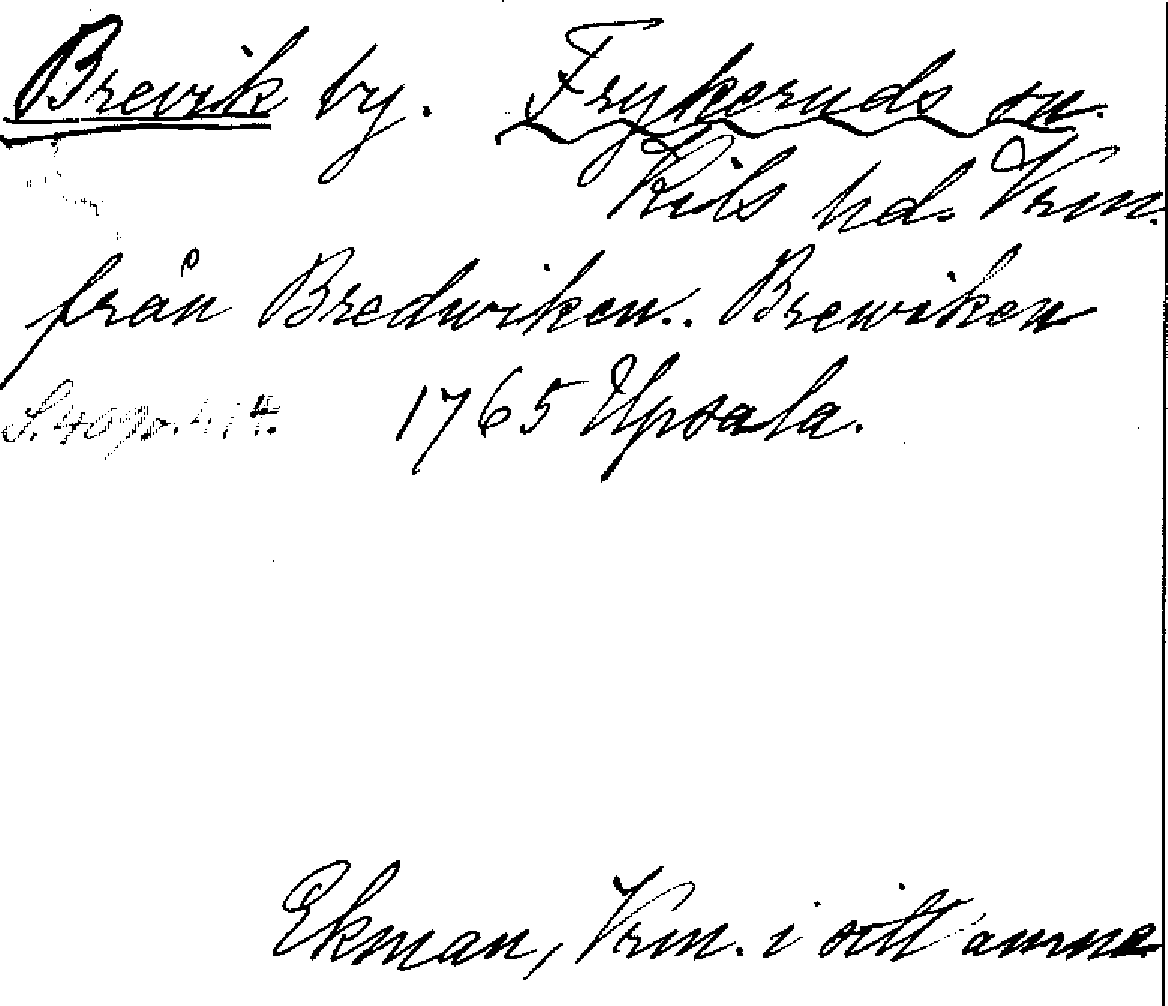 Brevik by. Frykeruds sn.
Kils hd. Vrm.
från Bredwiken. Brewiken
1765 Upsala.
Ekman, Vrm. i sitt ämne